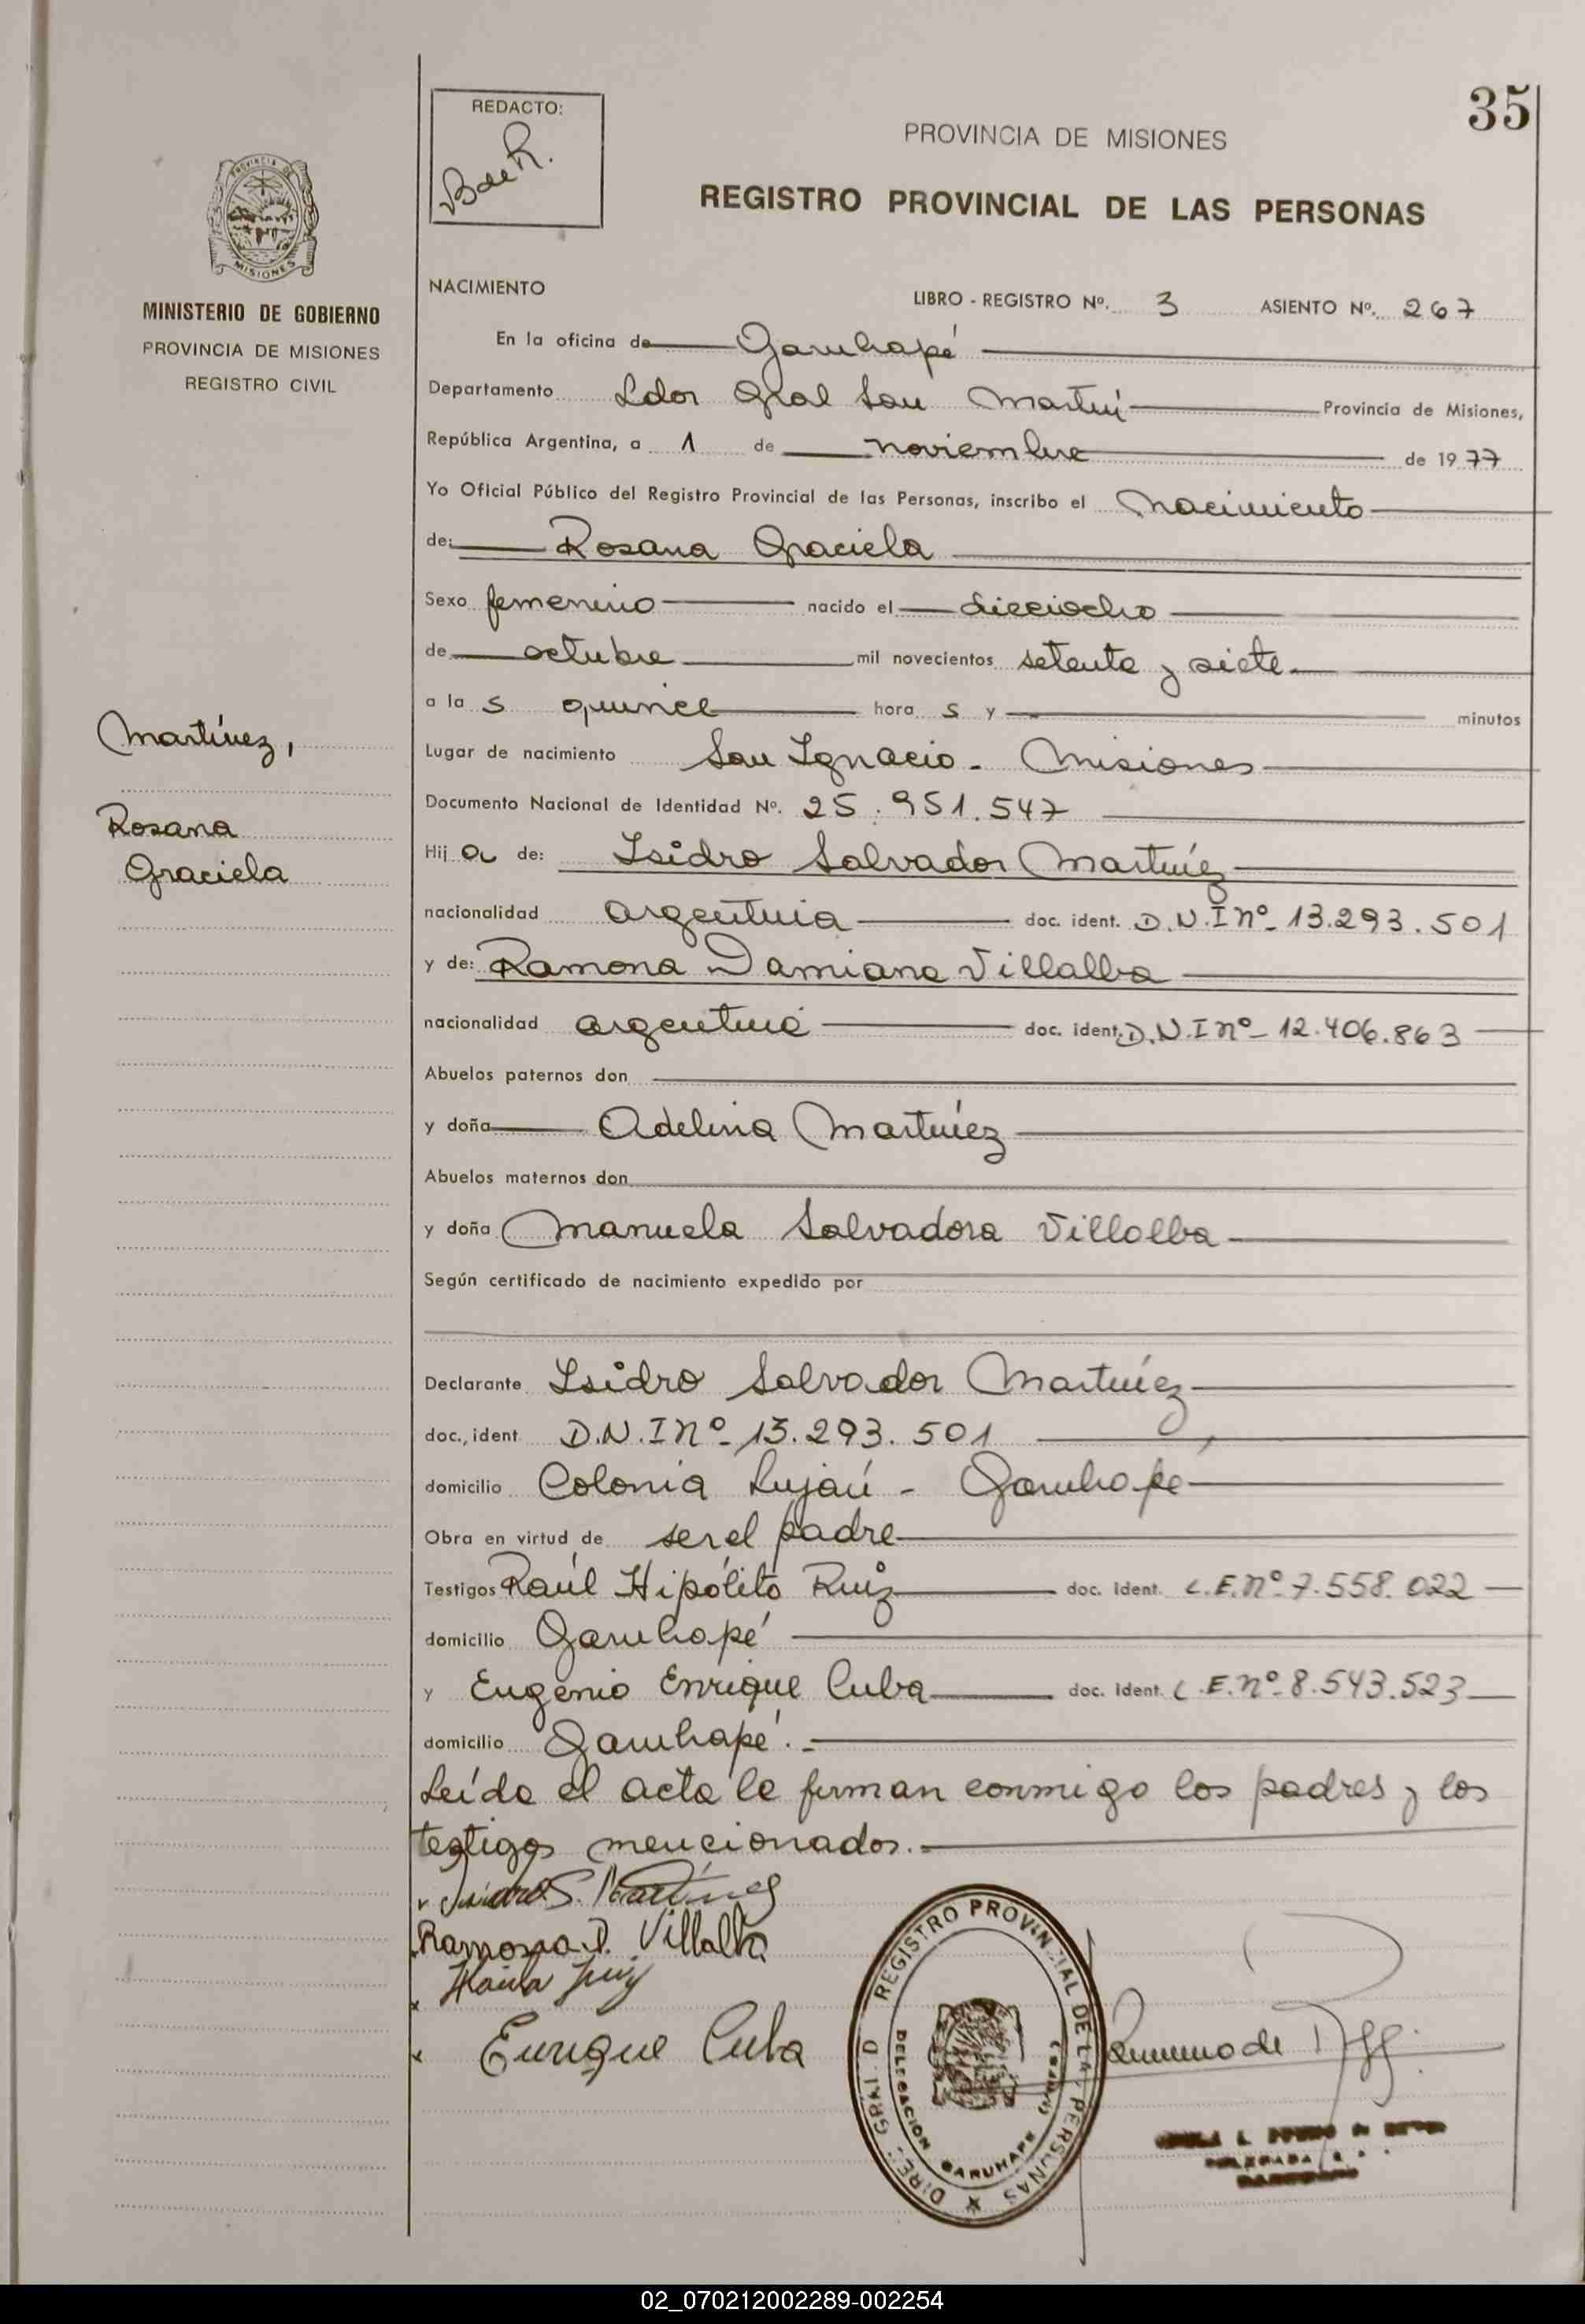 35
REDACTO:
B de R.
PROVINCIA DE MISIONES
REGISTRO PROVINCIAL DE LAS PERSONAS
PROVINCIA DE
MISIONES
MINISTERIO DE GOBIERNO
PROVINCIA DE MISIONES
REGISTRO CIVIL
Martínez,
Rosana
Graciela
NACIMIENTO
LIBRO - REGISTRO Nº. 3 ASIENTO Nº. 267
En la oficina de Garuhapé
Departamento Ldor Gral San Martín Provincia de Misiones,
República Argentina, a 1 de noviembre de 1977
Yo Oficial Público del Registro Provincial de las Personas, inscribo el Nacimiento
de: Rosana Graciela
Sexo femenino nacido el dieciocho
de octubre mil novecientos setenta y siete
a la s quince hora s y minutos
Lugar de nacimiento San Ignacio - Misiones
Documento Nacional de Identidad Nº. 25.951.547
Hij a de: Isidro Salvador Martínez
nacionalidad argentina doc. ident. D.N.I nº- 13.293.501
y de: Ramona Damiana Villalba
nacionalidad argentina doc. ident. D.N.I nº- 12.406.863
Abuelos paternos don
y doña Adelina Martínez
Abuelos maternos don
y doña Manuela Salvadora Villalba
Según certificado de nacimiento expedido por
Declarante Isidro Salvador Martínez
doc., ident. D.N.I nº- 13.293.501
domicilio Colonia Luján - Garuhapé
Obra en virtud de ser el padre
Testigos Raúl Hipólito Ruiz doc. ident. L.E. nº- 7.558.022
domicilio Garuhapé
y Eugenio Enrique Cuba doc. ident. L.E. nº- 8.543.523
domicilio Garuhapé.-
Leída el acta la firman conmigo los padres y los
testigos mencionados.-
Isidro S. Martínez
Ramona D. Villalba
Enrique Cuba
DIREC. GRAL. D REGISTRO PROVINCIAL DE LAS PERSONAS
DELEGACION GARUHAPE
02_070212002289-002254